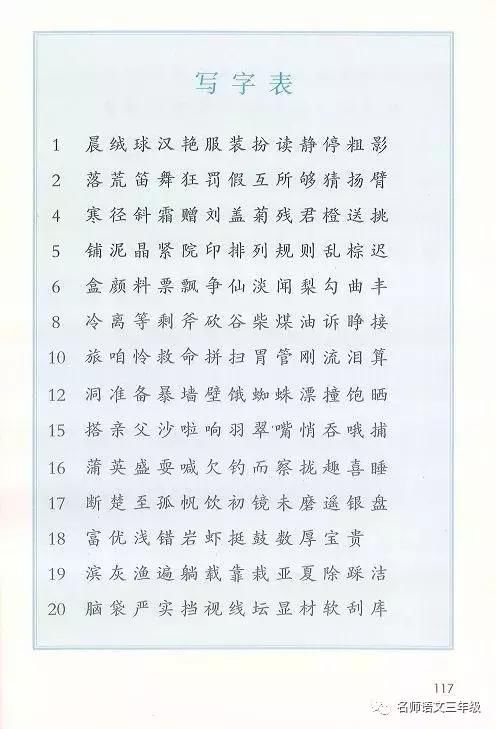 写字表
1 晨绒球汉艳服装扮读静停粗影
2 落荒笛舞狂罚假互所够猜扬臂
4 寒径斜霜赠刘盖菊残君橙送挑
5 铺泥晶紧院印排列规则乱棕迟
6 盒颜料票飘争仙淡闻梨勾曲丰
8 冷离等剩斧砍谷柴煤油诉睁接
10 旅咱怜救命拼扫胃管刚流泪算
12 洞准备暴墙壁饿蜘蛛漂撞饱晒
15 搭亲父沙啦响羽翠嘴悄吞哦捕
16 蒲英盛耍喊欠钓而察拢趣喜睡
17 断楚至孤帆饮初镜未磨遥银盘
18 富优浅错岩虾挺鼓数厚宝贵
19 滨灰渔遍躺载靠栽亚夏除踩洁
20 脑袋严实挡视线坛显材软刮库
117
名师语文三年级